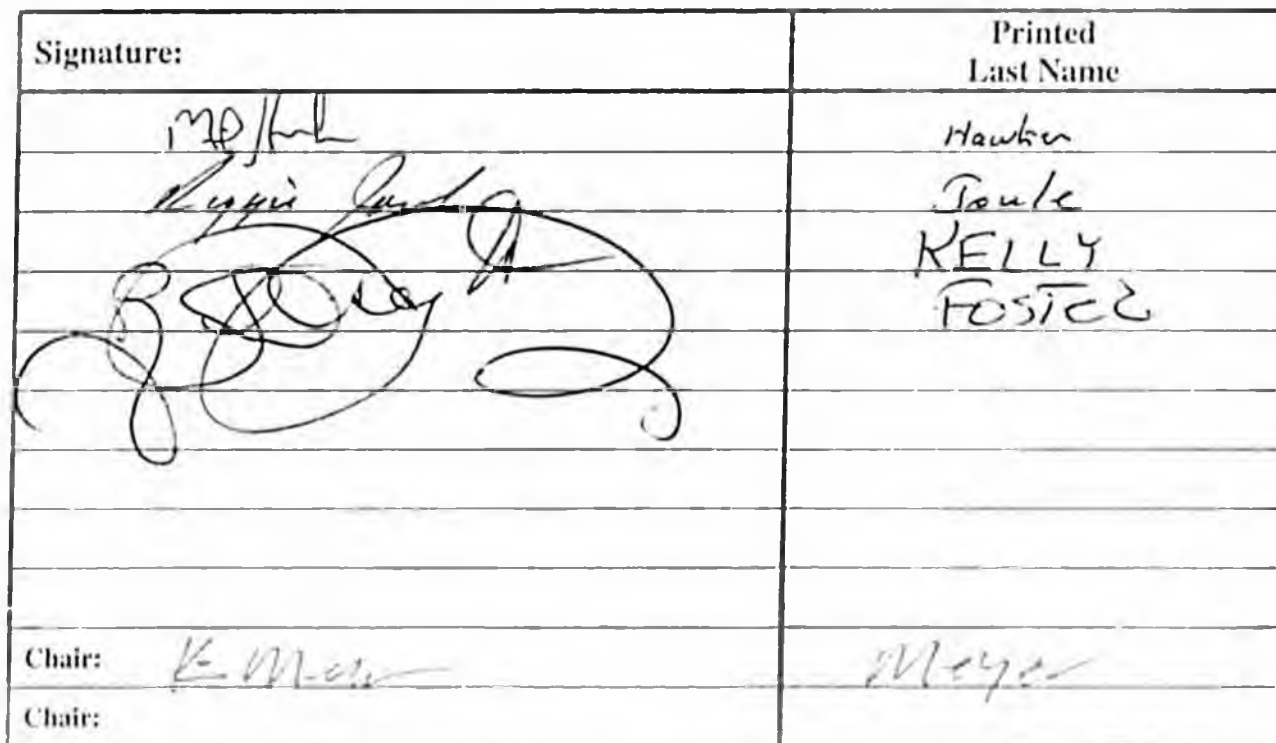 Signature:
Printed
Last Name
Hawker
Reggie Joule
Joule
KELLY
FOSTER
Chair: K Meyer
Meyer
Chair: